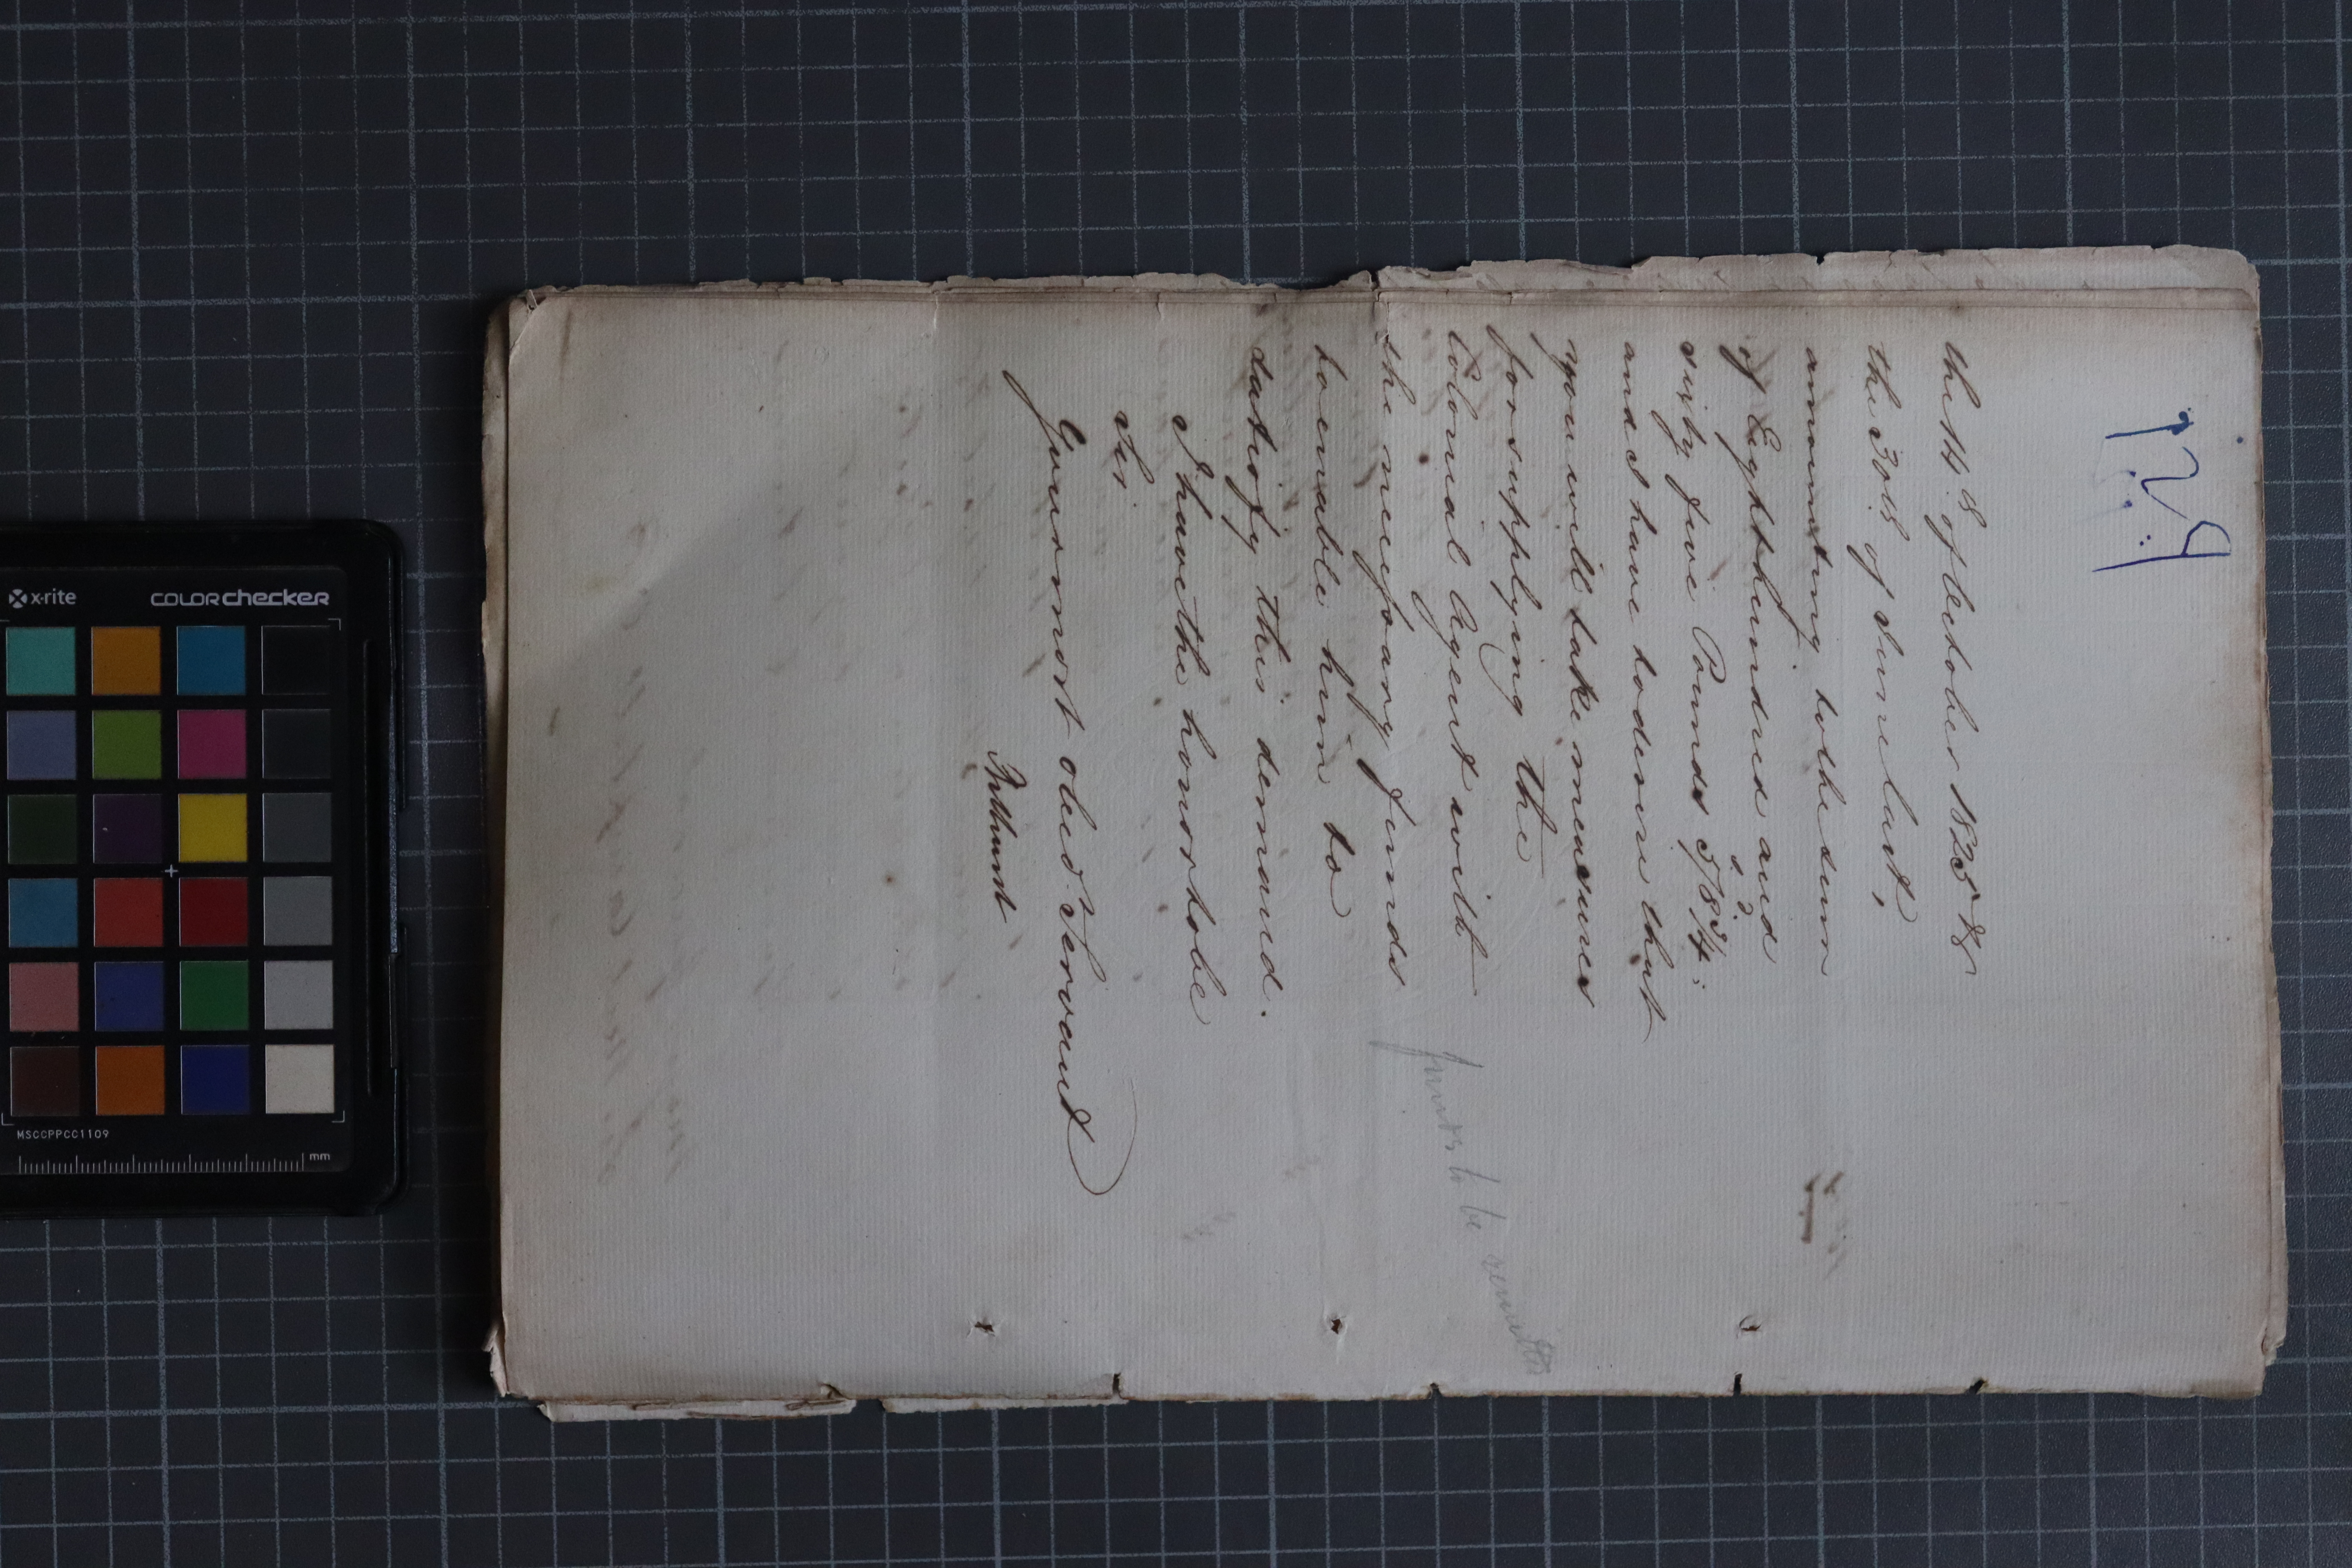 the 14th of October 1825 &
the 30th of June last,
amounting to the sum
of Eight hundred and
sixty five Pounds 5/8 3/4:
s. d.
and I have to desire that
you will take measures
for supplying the
Colonial Agent with
the necessary funds
to enable him to
satisfy this demand.
I have the honor to be
Sir
Your most obed. Servant
Bathurst
funds to be remitted
x-rite
colorchecker
MSCCPPCC1109
mm